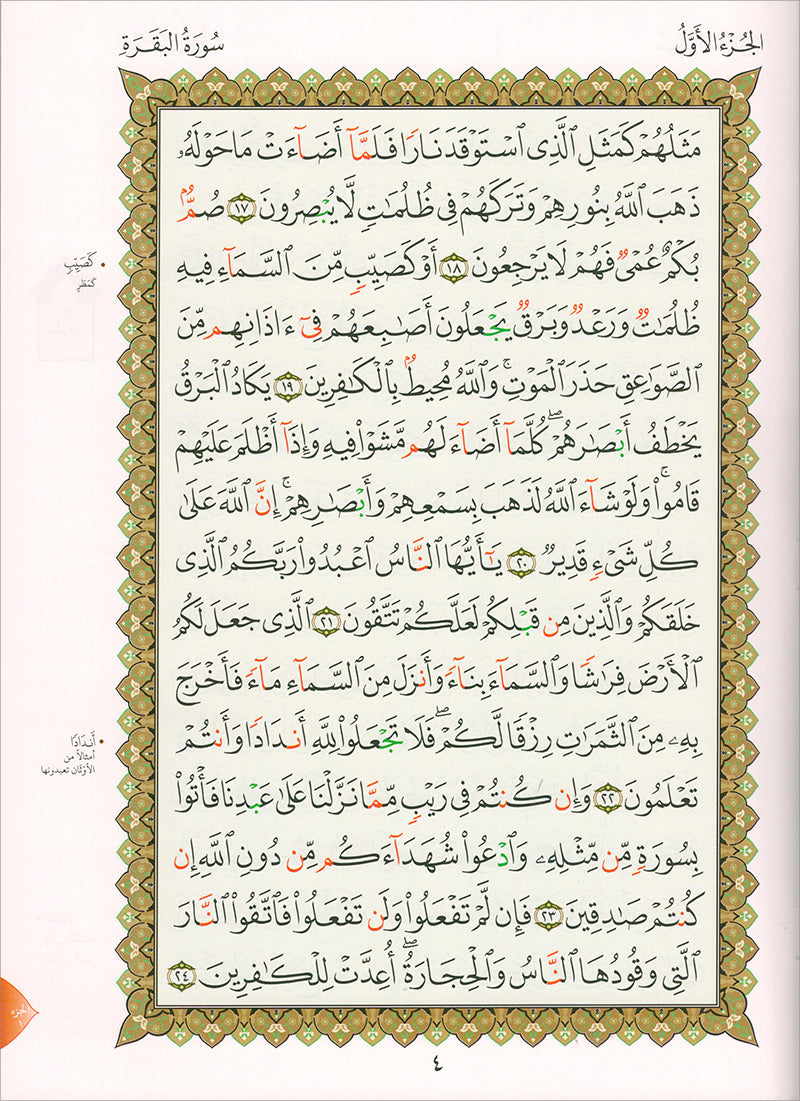 الجُزْءُ الأَوَّلُ
سُورَةُ البَقَرَةِ
مَثَلُهُمْ كَمَثَلِ ٱلَّذِى ٱسْتَوْقَدَ نَارًا فَلَمَّآ أَضَآءَتْ مَا حَوْلَهُۥ
ذَهَبَ ٱللَّهُ بِنُورِهِمْ وَتَرَكَهُمْ فِى ظُلُمَٰتٍ لَّا يُبْصِرُونَ ١٧ صُمٌّۢ
بُكْمٌ عُمْىٌ فَهُمْ لَا يَرْجِعُونَ ١٨ أَوْ كَصَيِّبٍ مِّنَ ٱلسَّمَآءِ فِيهِ
ظُلُمَٰتٌ وَرَعْدٌ وَبَرْقٌ يَجْعَلُونَ أَصَٰبِعَهُمْ فِىٓ ءَاذَانِهِم مِّنَ
ٱلصَّوَٰعِقِ حَذَرَ ٱلْمَوْتِ ۚ وَٱللَّهُ مُحِيطٌۢ بِٱلْكَٰفِرِينَ ١٩ يَكَادُ ٱلْبَرْقُ
يَخْطَفُ أَبْصَٰرَهُمْ ۖ كُلَّمَآ أَضَآءَ لَهُم مَّشَوْا۟ فِيهِ وَإِذَآ أَظْلَمَ عَلَيْهِمْ
قَامُوا۟ ۚ وَلَوْ شَآءَ ٱللَّهُ لَذَهَبَ بِسَمْعِهِمْ وَأَبْصَٰرِهِمْ ۚ إِنَّ ٱللَّهَ عَلَىٰ
كُلِّ شَىْءٍ قَدِيرٌ ٢٠ يَٰٓأَيُّهَا ٱلنَّاسُ ٱعْبُدُوا۟ رَبَّكُمُ ٱلَّذِى
خَلَقَكُمْ وَٱلَّذِينَ مِن قَبْلِكُمْ لَعَلَّكُمْ تَتَّقُونَ ٢١ ٱلَّذِى جَعَلَ لَكُمُ
ٱلْأَرْضَ فِرَٰشًا وَٱلسَّمَآءَ بِنَآءً وَأَنزَلَ مِنَ ٱلسَّمَآءِ مَآءً فَأَخْرَجَ
بِهِۦ مِنَ ٱلثَّمَرَٰتِ رِزْقًا لَّكُمْ ۖ فَلَا تَجْعَلُوا۟ لِلَّهِ أَندَادًا وَأَنتُمْ
تَعْلَمُونَ ٢٢ وَإِن كُنتُمْ فِى رَيْبٍ مِّمَّا نَزَّلْنَا عَلَىٰ عَبْدِنَا فَأْتُوا۟
بِسُورَةٍ مِّن مِّثْلِهِۦ وَٱدْعُوا۟ شُهَدَآءَكُم مِّن دُونِ ٱللَّهِ إِن
كُنتُمْ صَٰدِقِينَ ٢٣ فَإِن لَّمْ تَفْعَلُوا۟ وَلَن تَفْعَلُوا۟ فَٱتَّقُوا۟ ٱلنَّارَ
ٱلَّتِى وَقُودُهَا ٱلنَّاسُ وَٱلْحِجَارَةُ ۖ أُعِدَّتْ لِلْكَٰفِرِينَ ٢٤
• كَصَيِّبٍ
كَمَطَرٍ
• أَندَادًا
أمثالاً من
الأوْثان تعبدونها
الجزء
١
٤